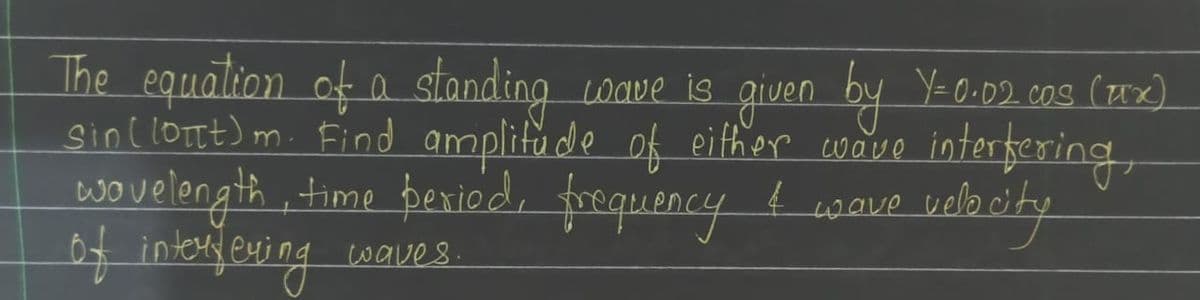 The equation of a standing wave is given by Y=0.02 cos (πx)
sin(10πt) m. Find amplitude of either wave interfering,
wavelength, time period, frequency & wave velocity
of interfering waves.